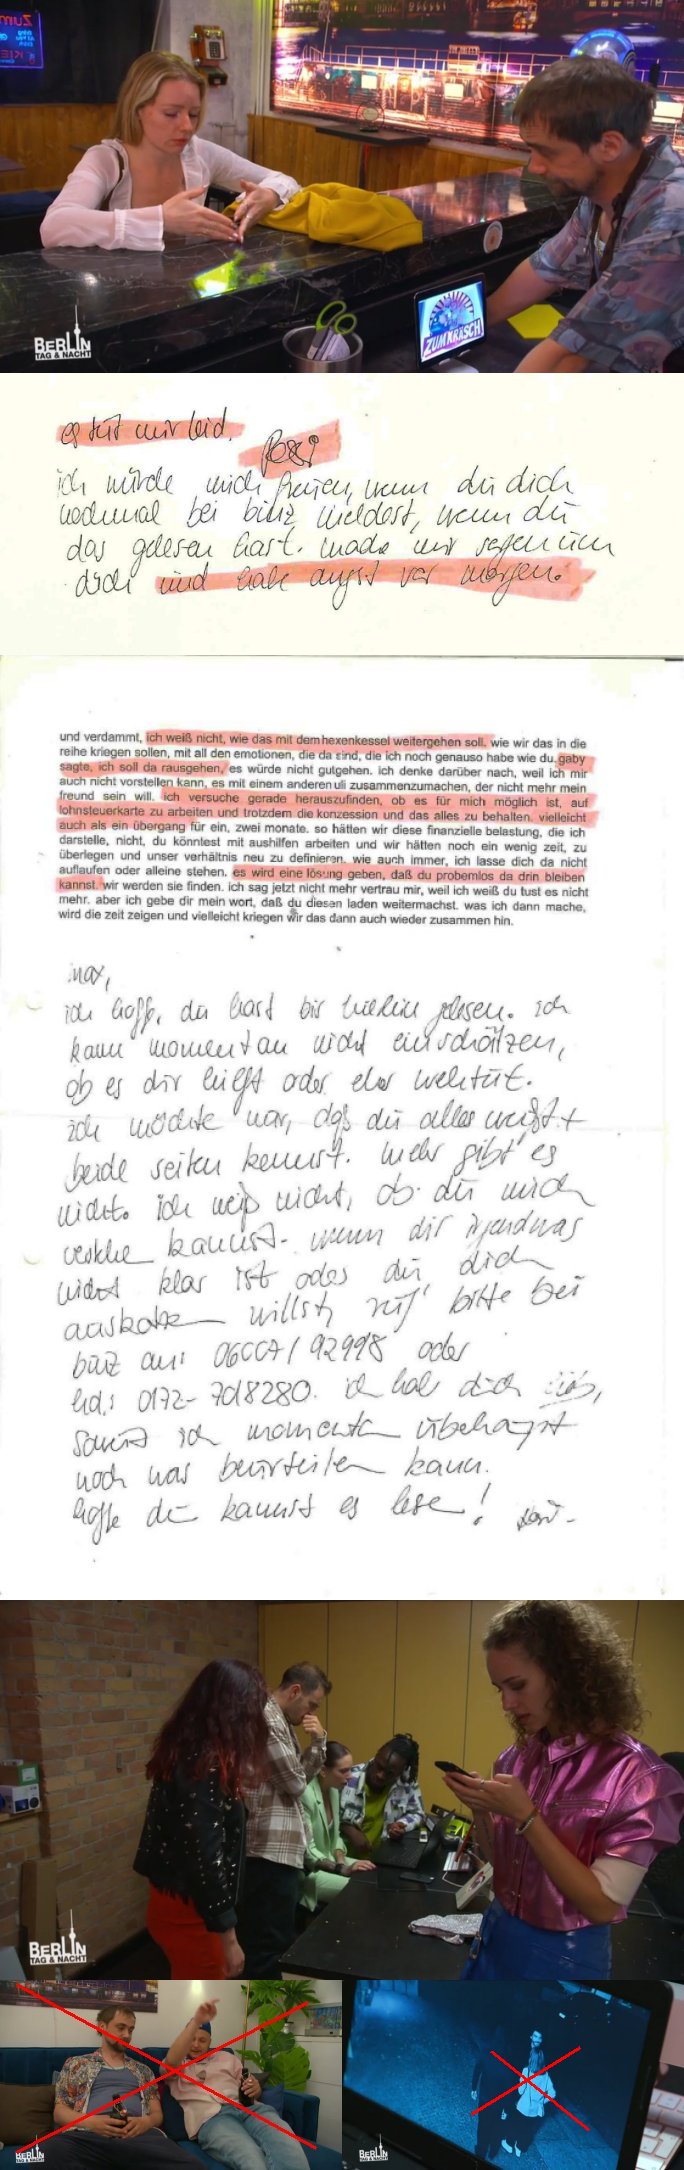 Zum
BERLIN
TAG & NACHT
ZUM KRÄSCH
es tut mir leid.
ich würde mich freuen, wenn du dich
nochmal bei binz meldest, wenn du
das gelesen hast. mache mir sorgen um
dich und habe angst vor morgen.
und verdammt, ich weiß nicht, wie das mit dem hexenkessel weitergehen soll. wie wir das in die
reihe kriegen sollen, mit all den emotionen, die da sind, die ich noch genauso habe wie du. gaby
sagte, ich soll da rausgehen, es würde nicht gutgehen. ich denke darüber nach, weil ich mir
auch nicht vorstellen kann, es mit einem anderen uli zusammenzumachen, der nicht mehr mein
freund sein will. ich versuche gerade herauszufinden, ob es für mich möglich ist, auf
lohnsteuerkarte zu arbeiten und trotzdem die konzession und das alles zu behalten. vielleicht
auch als ein übergang für ein, zwei monate. so hätten wir diese finanzielle belastung, die ich
darstelle, nicht, du könntest mit aushilfen arbeiten und wir hätten noch ein wenig zeit, zu
überlegen und unser verhältnis neu zu definieren. wie auch immer, ich lasse dich da nicht
auflaufen oder alleine stehen. es wird eine lösung geben, daß du probemlos da drin bleiben
kannst. wir werden sie finden. ich sag jetzt nicht mehr vertrau mir, weil ich weiß du tust es nicht
mehr. aber ich gebe dir mein wort, daß du diesen laden weitermachst. was ich dann mache,
wird die zeit zeigen und vielleicht kriegen wir das dann auch wieder zusammen hin.
max,
ich hoffe, du hast bis hierhin gelesen. ich
kann momentan nicht einschätzen,
ob es dir hilft oder eher wehtut.
ich möchte nur, daß du alles weißt +
beide seiten kennst. mehr gibt es
nicht. ich weiß nicht, ob du mich
verstehen kannst. wenn dir irgendwas
nicht klar ist oder du dich
auskotzen willst, ruf bitte bei
binz an: 06007/92998 oder
hd.: 0172-7018280. ich hab dich lieb,
soweit ich momentan überhaupt
noch was beurteilen kann.
hoffe du kannst es lesen!
BERLIN
TAG & NACHT
BERLIN
TAG & NACHT
BERLIN
TAG & NACHT